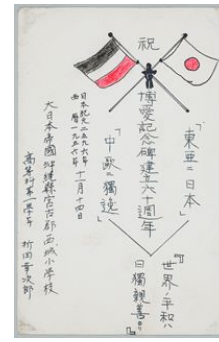 祝
博愛記念碑建立六十週年
「東亜ニ日本」
「中歐ニ獨逸」
『世界ノ平和ハ
日獨親善ヨリ』
日本紀元二五九六年
西暦一九三六年 十一月十四日
大日本帝國沖縄縣宮古郡西城小学校
高等科第一學年 幸次郎